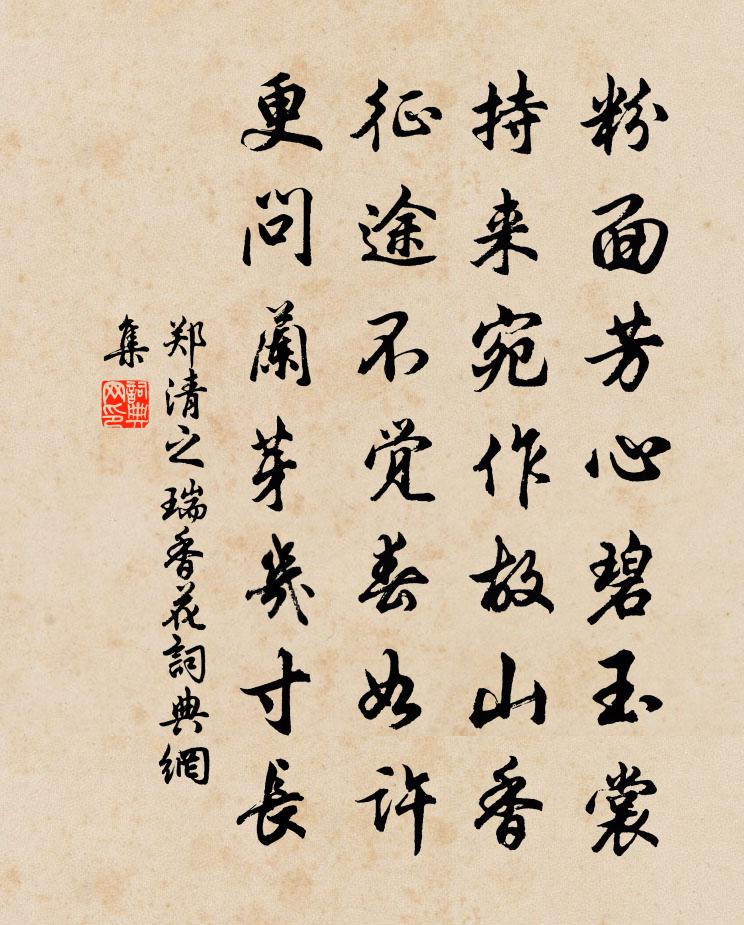 粉面芳心碧玉裳
持来宛作故山香
征途不觉春如许
更问蘭芽幾寸長
郑清之瑞香花詞典網
集
詞典网印